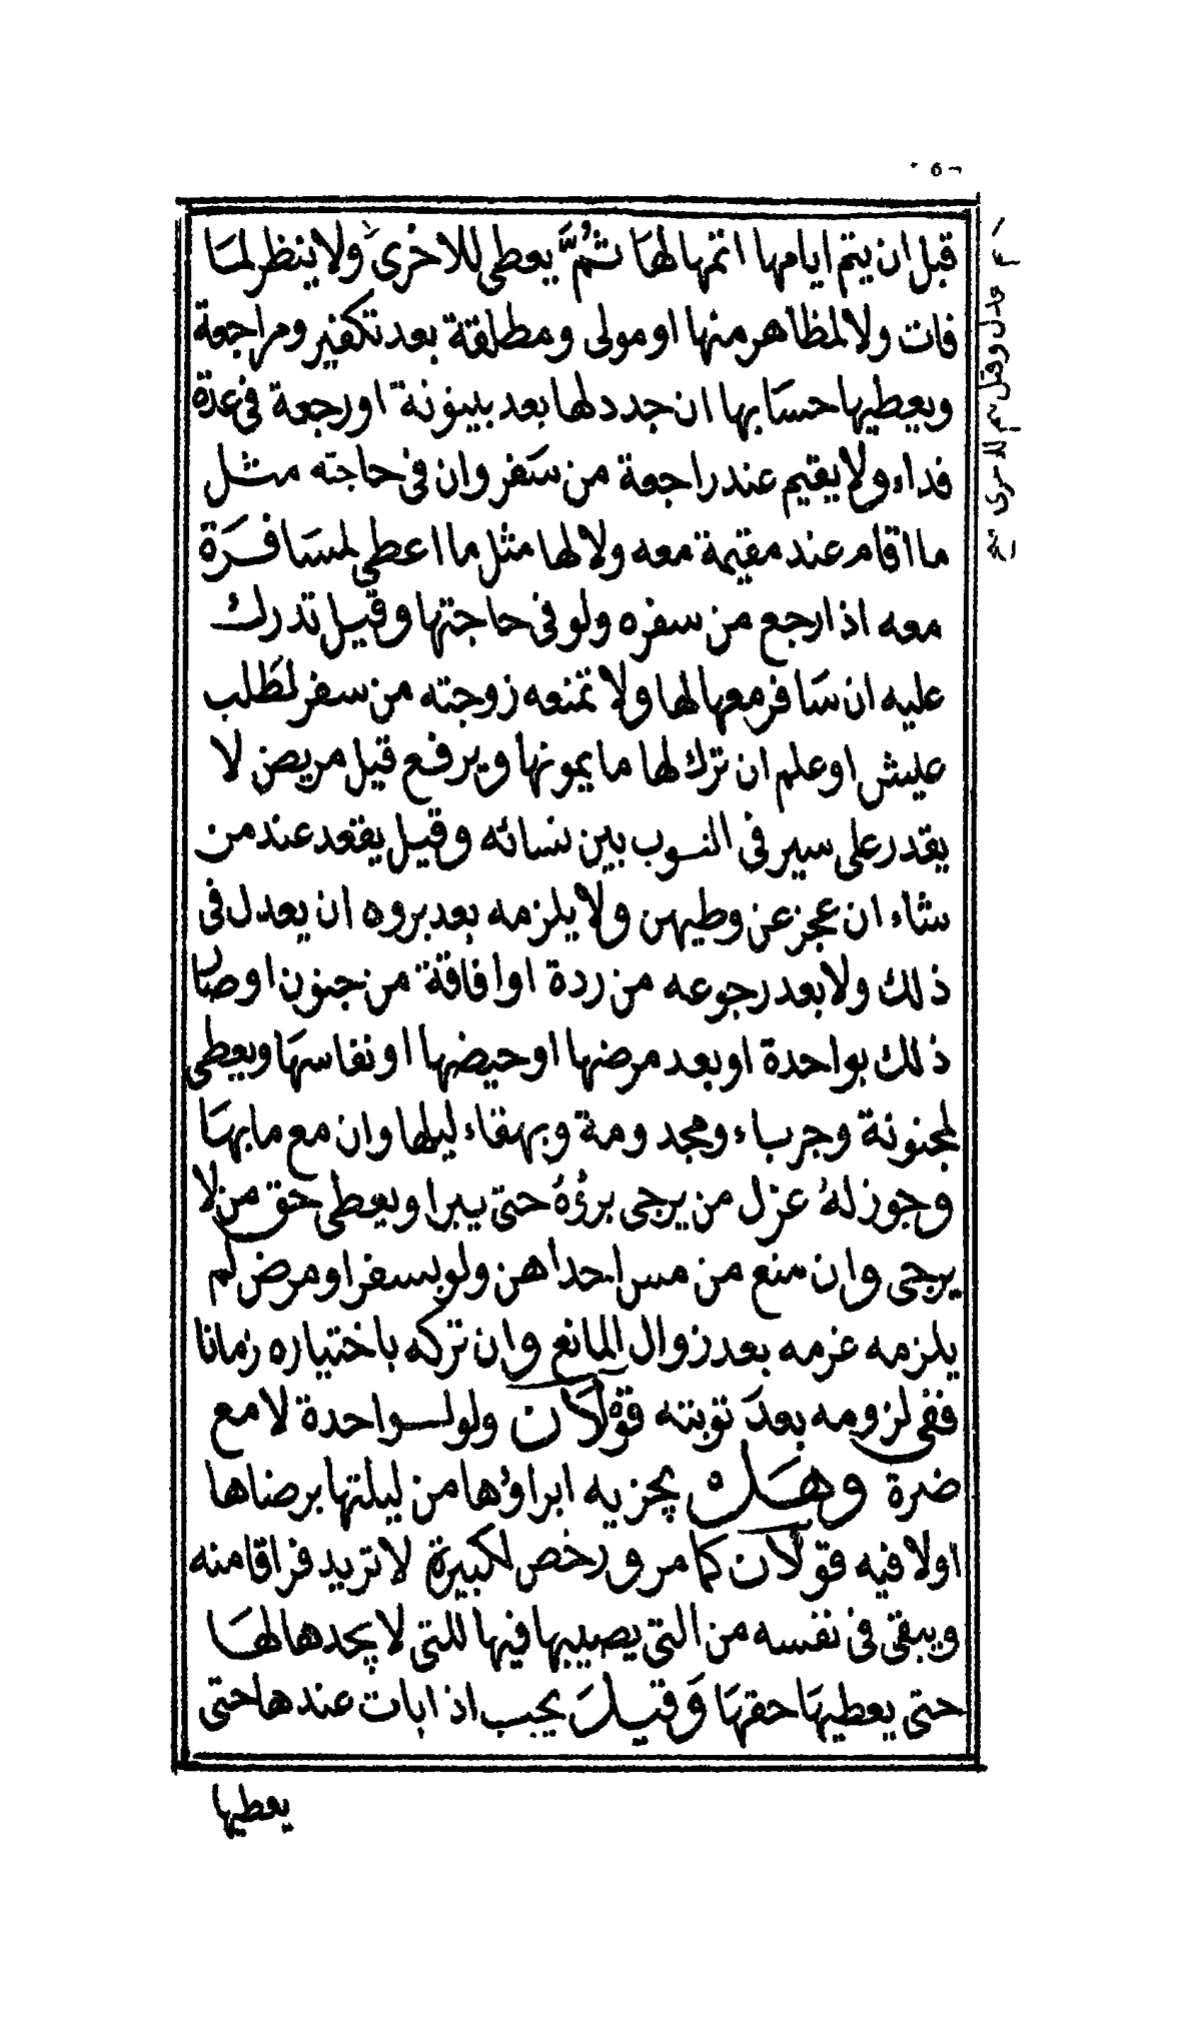 قبل ان يتم ايامها اتمها لها ثمَّ يعطى للاخرى ولا ينظر لما
فات ولا لمظاهر منها او مولى ومطلقة بعد تكفير ومراجعة
ويعطيها حسابها ان جدد لها بعد بينونة او رجعة فى عدة
فداء ولا يقيم عند راجعة من سفر وان فى حاجته مثل
ما اقام عند مقيمة معه ولا لها مثل ما اعطى لمسافرة
معه اذا رجع من سفره ولو فى حاجتها وقيل تدرك
عليه ان سافر معها لها ولا تمنعه زوجته من سفر لمطلب
عيش او علم ان ترك لها ما يمونها ويرفع قيل مريض لا
يقدر على سير فى النوب بين نسائه وقيل يقعد عند من
شاء ان عجز عن وطيهن ولا يلزمه بعد بروه ان يعدل فى
ذلك ولا بعد رجوعه من ردة او افاقة من جنون او صار
ذلك بواحدة او بعد مرضها او حيضها او نفاسها ويعطى
لمجنونة وجرباء ومجدومة وبهقاء ليلها وان مع ما بها
وجوز لهُ عزل من يرجى برؤهُ حتى يبرا ويعطى حق من لا
يرجى وان منع من مس احداهن ولو بسفر او مرض لم
يلزمه غرمه بعد زوال المانع وان تركه باختياره زمانا
ففى لزومه بعدَ توبته قولان ولو لواحدة لا مع
ضرة وهل يجزيه ابراؤها من ليلتها برضاها
اولا فيه قولان كما مر ورخص لكبيرة لا تريد فراقا منه
ويبقى فى نفسه من التى يصيبها فيها للتى لا يجدها لها
حتى يعطيها حقها وَقيلَ يجب اذا بات عندها حتى
يعطيها